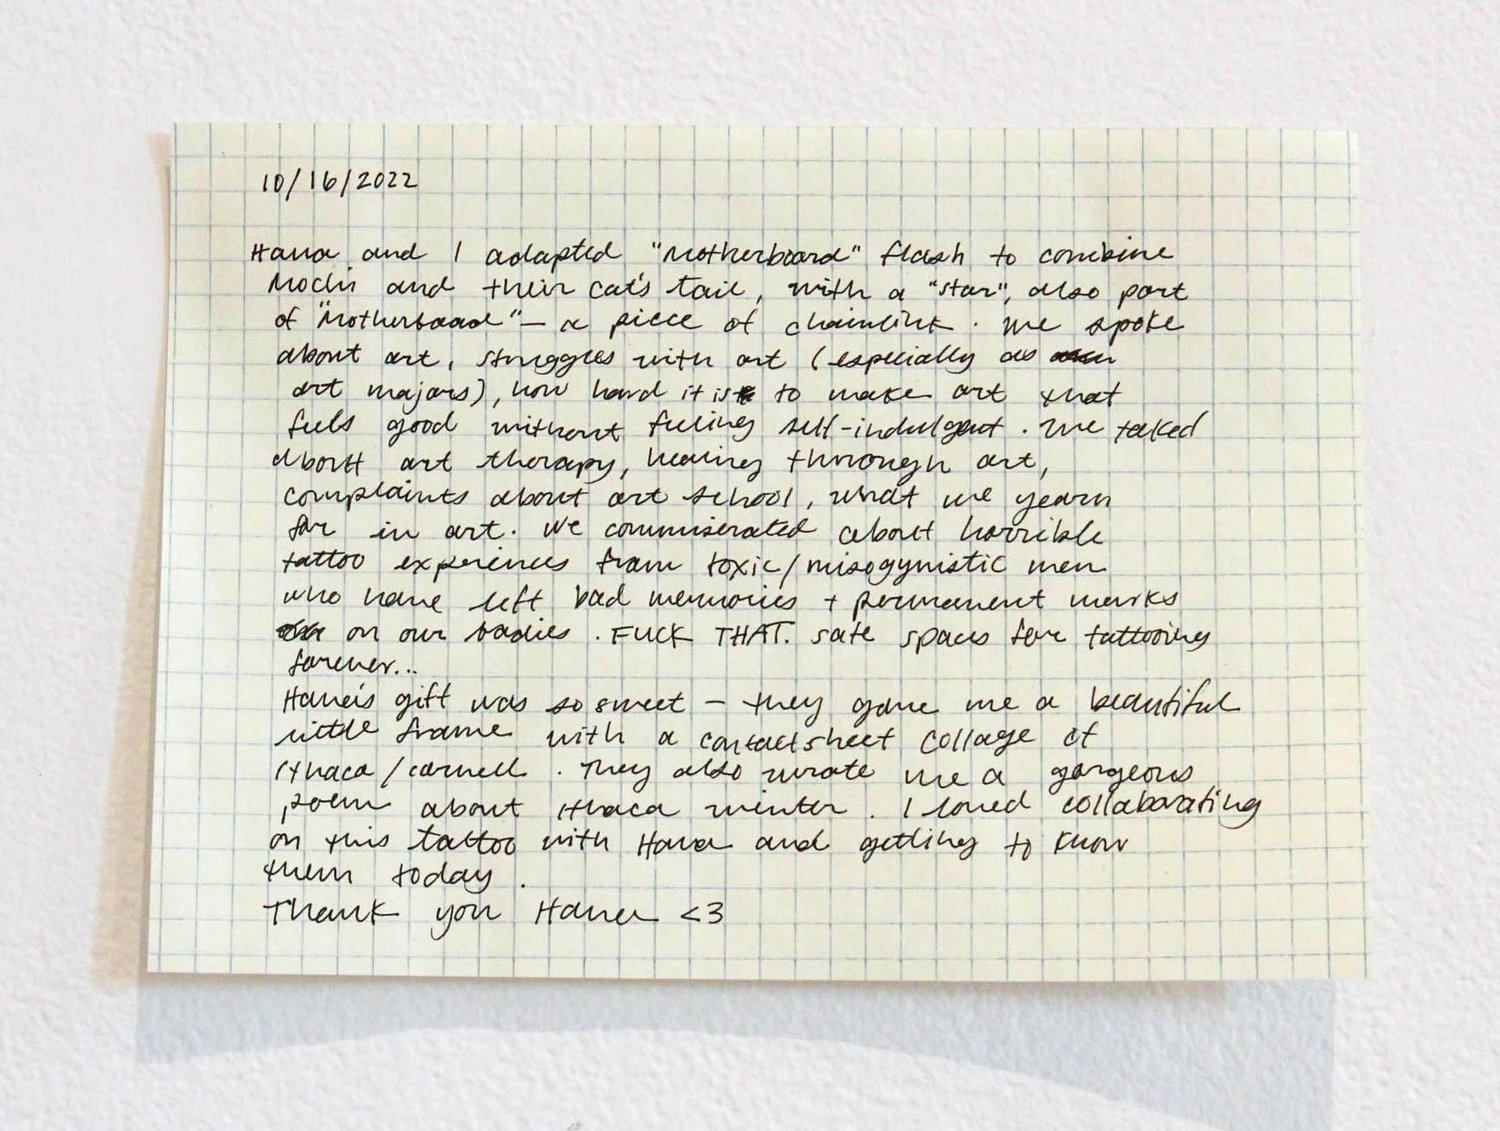 10/16/2022
Hana and I adapted "Motherboard" flash to combine
Mochi and their cat's tail, with a "star", also part
of "Motherboard" – a piece of chainlink. We spoke
about art, struggles with art (especially as
art majors), how hard it is to make art that
feels good without feeling self-indulgent. We talked
about art therapy, healing through art,
complaints about art school, what we yearn
for in art. We commiserated about horrible
tattoo experiences from toxic/misogynistic men
who have left bad memories + permanent marks
on our bodies. FUCK THAT. safe spaces for tattooing
forever...
Hana's gift was so sweet – they gave me a beautiful
little frame with a contact sheet collage of
Ithaca/Cornell. They also wrote me a gorgeous
poem about Ithaca winter. I loved collaborating
on this tattoo with Hana and getting to know
them today.
Thank you Hana <3